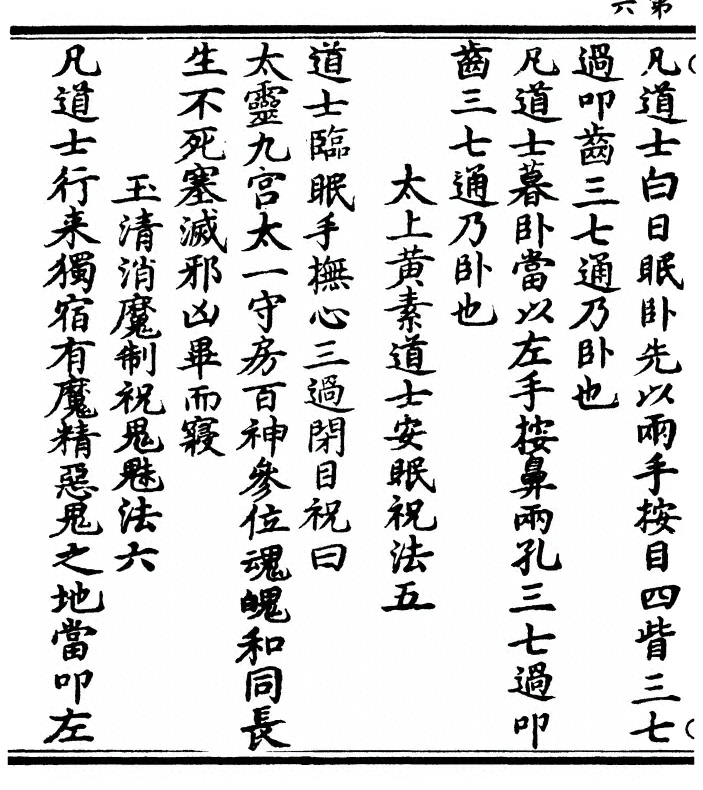 第六
凡道士白日眠卧先以兩手按目四眥三七
過叩齒三七通乃卧也
凡道士暮卧當以左手按鼻兩孔三七過叩
齒三七通乃卧也
太上黄素道士安眠祝法五
道士臨眠手撫心三過閉目祝曰
太靈九宫太一守房百神參位魂魄和同長
生不死塞滅邪凶畢而寢
玉清消魔制祝鬼魅法六
凡道士行来獨宿有魔精惡鬼之地當叩左